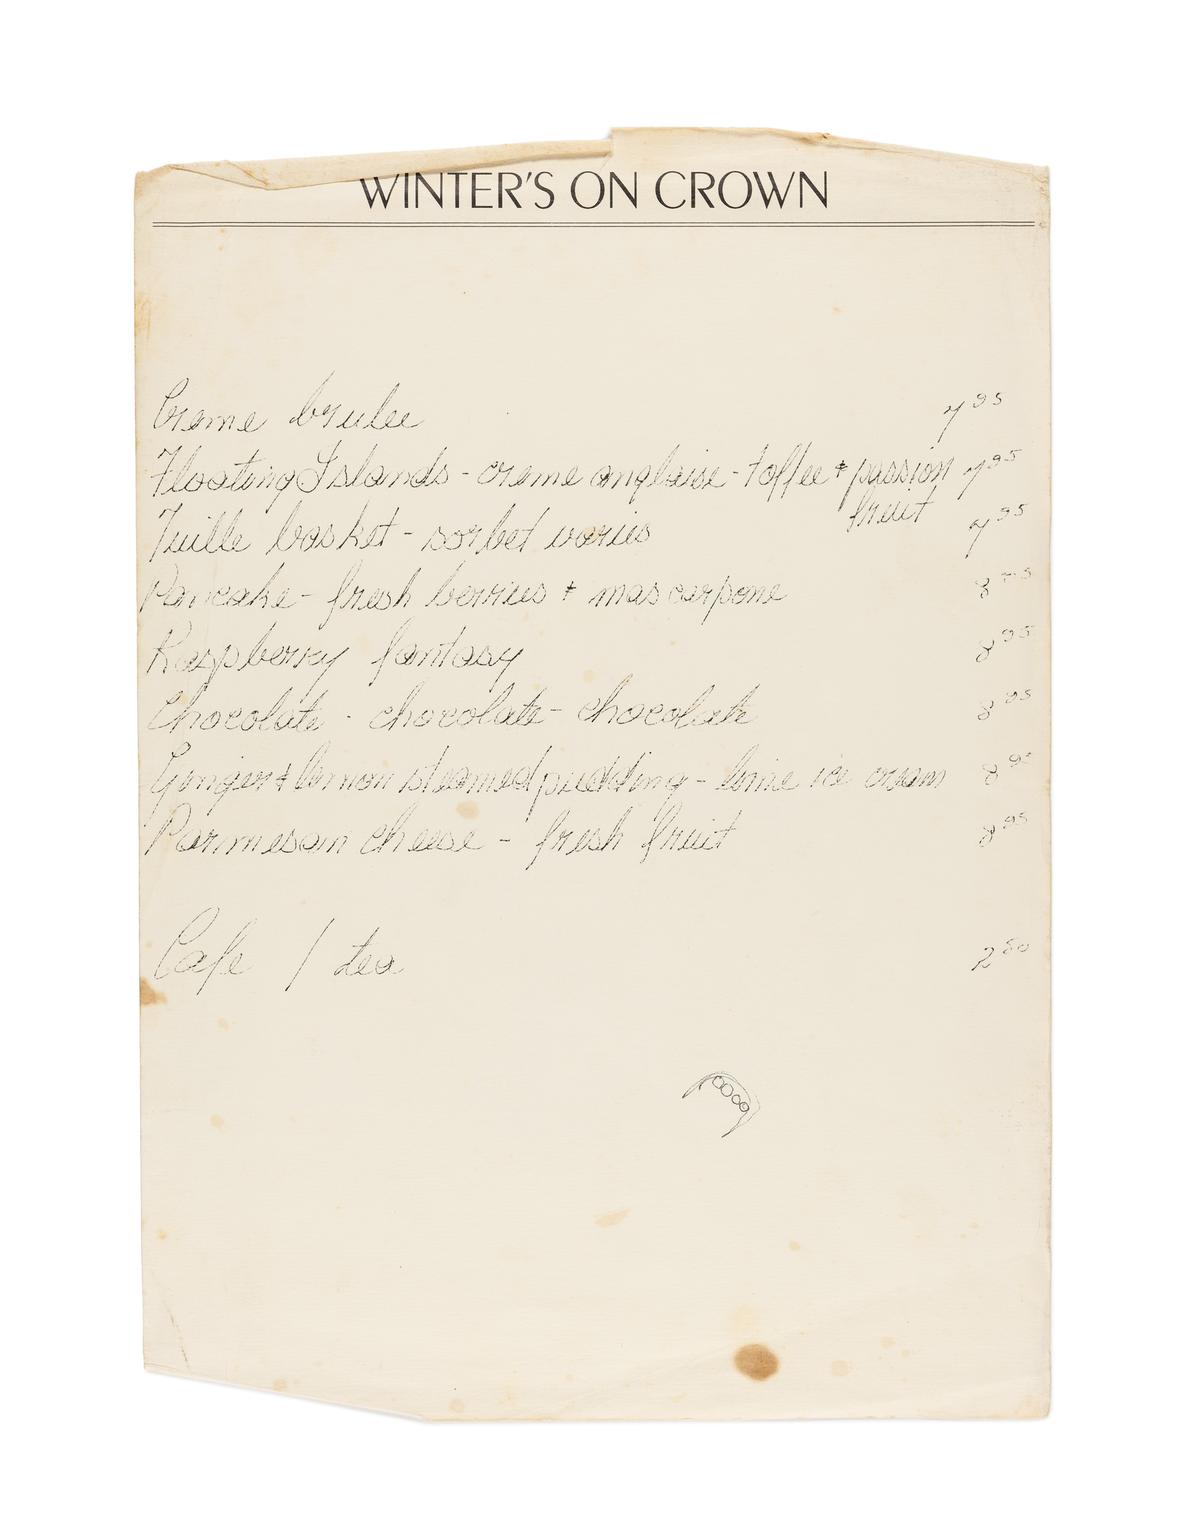 WINTER'S ON CROWN
Creme brulee 7 95
Floating Islands - creme anglaise - toffee & passion 7 95
fruit
Tuille basket - sorbet varies 7 95
Pancake - fresh berries & mascarpone 8
Raspberry fantasy 8 95
Chocolate - chocolate - chocolate 8 95
Ginger & lemon steamed pudding - lime ice cream 8 95
Parmesan cheese - fresh fruit 8 95
Cafe / tea 2 50